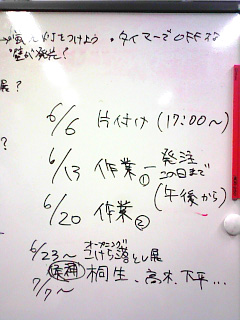 つけよう ・タイマーでOFF
展?
?
6/6 片付け(17:00~)
6/13 作業① 発注この日まで
(午後から)
6/20 作業②
6/23~ オープニング
こけら落とし展
7/7~ 候補 桐生、高木、下平…